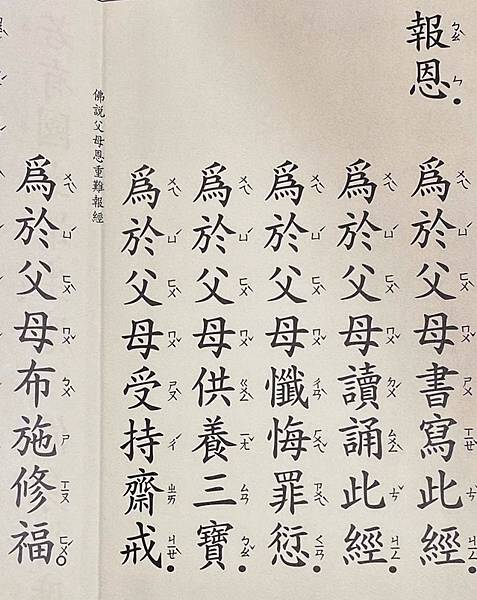 報恩。
爲於父母書寫此經。
爲於父母讀誦此經。
爲於父母懺悔罪愆。
爲於父母供養三寶。
爲於父母受持齋戒。
佛說父母恩重難報經
爲於父母布施修福。